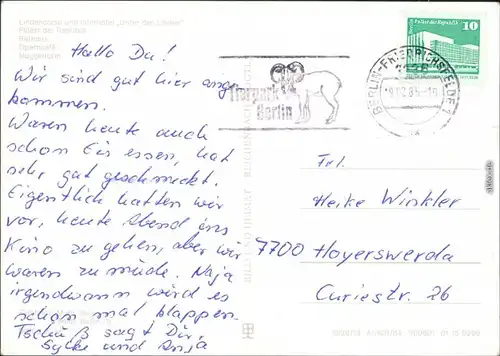 Lindencorso und Grillhotel "Unter den Linden"
Palast der Republik
Rathaus
Hallo Du!
Wir sind gut hier ange
kommen.
Waren heute auch
schon Eis essen, hat
sehr gut geschmeckt.
Eigentlich hatten wir
vor, heute Abend ins
Kino zu gehen, aber wir
waren zu müde. Naja
irgendwann wird es
schon mal klappen.
Tschüß sagt Dir,
Sylke und Anja
Tierpark
Berlin
BERLIN-FRIEDRICHSFELDE 1
Palast der Republik
10
DDR
BILD UND HEIMAT REICHENBACH
Frl.
Heike Winkler
7700 Hoyerswerda
Curiestr. 26